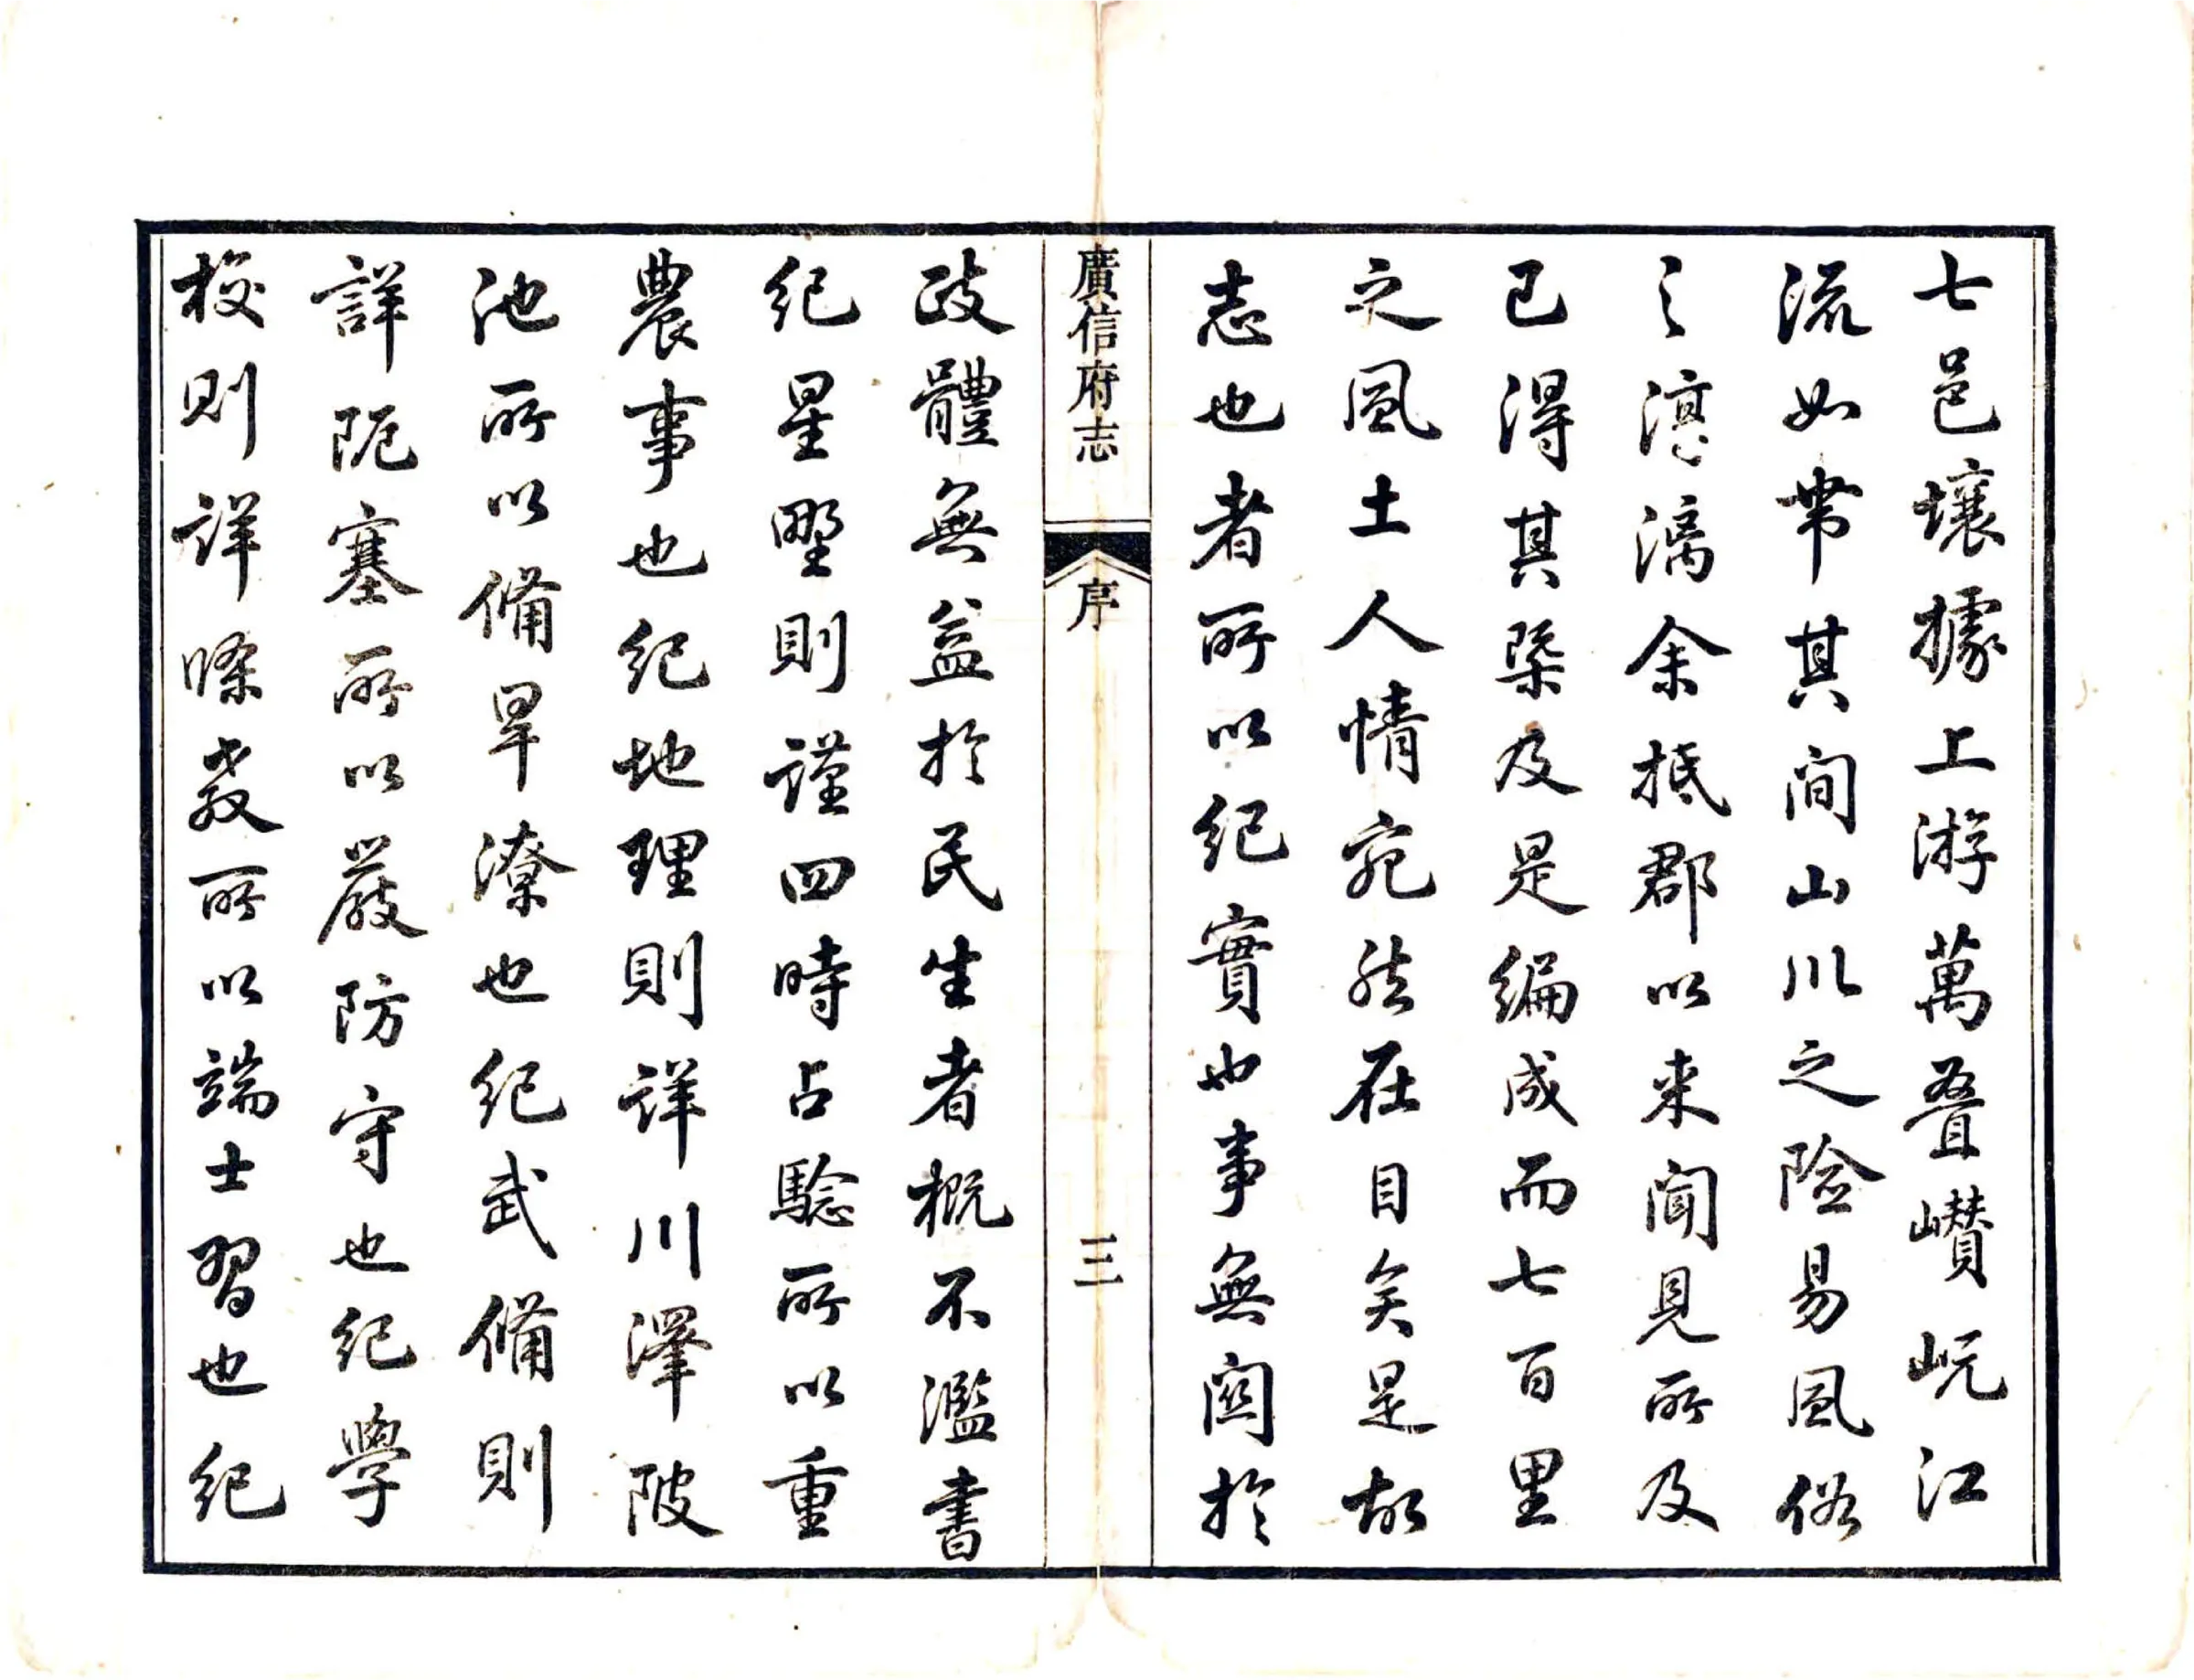 七邑壤據上游萬叠巑岏江
流如帶其间山川之險易風俗
之淳漓余抵郡以来闻見所及
已得其槩及是编成而七百里
之風土人情宛然在目矣是故
志也者所以纪實也事無関於
廣信府志 序 三
政體無益於民生者概不濫書
纪星野則謹四時占騐所以重
農事也纪地理則详川澤陂
池所以備旱潦也纪武備則
詳阨塞所以嚴防守也纪學
校則详條教所以端士習也纪